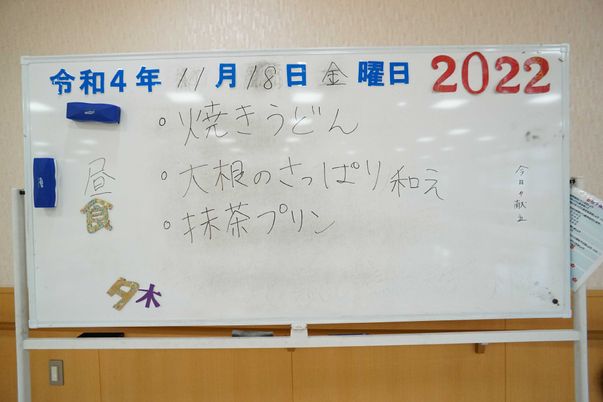 令和4年 11月18日 金曜日 2022
昼食
・焼きうどん
・大根のさっぱり和え
・抹茶プリン
今日の献立
夕